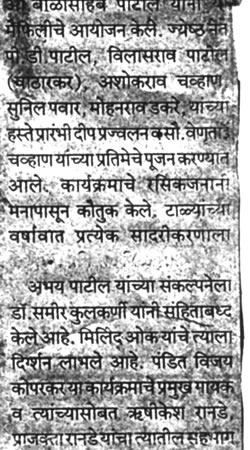 बाळासाहेब पाटील यांनी या
मैफिलीचे आयोजन केले. ज्येष्ठ नेते
पी.डी.पाटील, विलासराव पाटील
(वाठारकर), अशोकराव चव्हाण,
सुनिल पवार, मोहनराव डकरे, यांच्या
हस्ते प्रारंभी दीप प्रज्वलन व सौ. वेणूताई
चव्हाण यांच्या प्रतिमेचे पूजन करण्यात
आले. कार्यक्रमाचे रसिकजनांनी
मनापासून कौतुक केले. टाळ्यांच्या
वर्षावात प्रत्येक सादरीकरणाला
अभय पाटील यांच्या संकल्पनेला
डॉ. समीर कुलकर्णी यांनी संहिताबध्द
केले आहे. मिलिंद ओक यांचे त्याला
दिग्र्शन लाभले आहे. पंडित विजय
कोपरकर या कार्यक्रमाचे प्रमुख गायक
व त्यांच्यासोबत ऋषीकेश रानडे,
प्राजक्ता रानडे यांचा त्यातील सहभाग